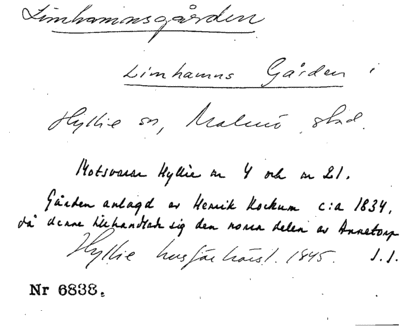 Limhamnsgården
Limhamns Gården i
Hyllie sn, Malmö stad.
Motsvarar Hyllie nr 4 och nr 21.
Gården anlagd av Henrik Kockum c:a 1834,
då denne tillhandlade sig den norra delen av Annetorp
Hyllie husförhörsl. 1845. S.I.
Nr 6838.